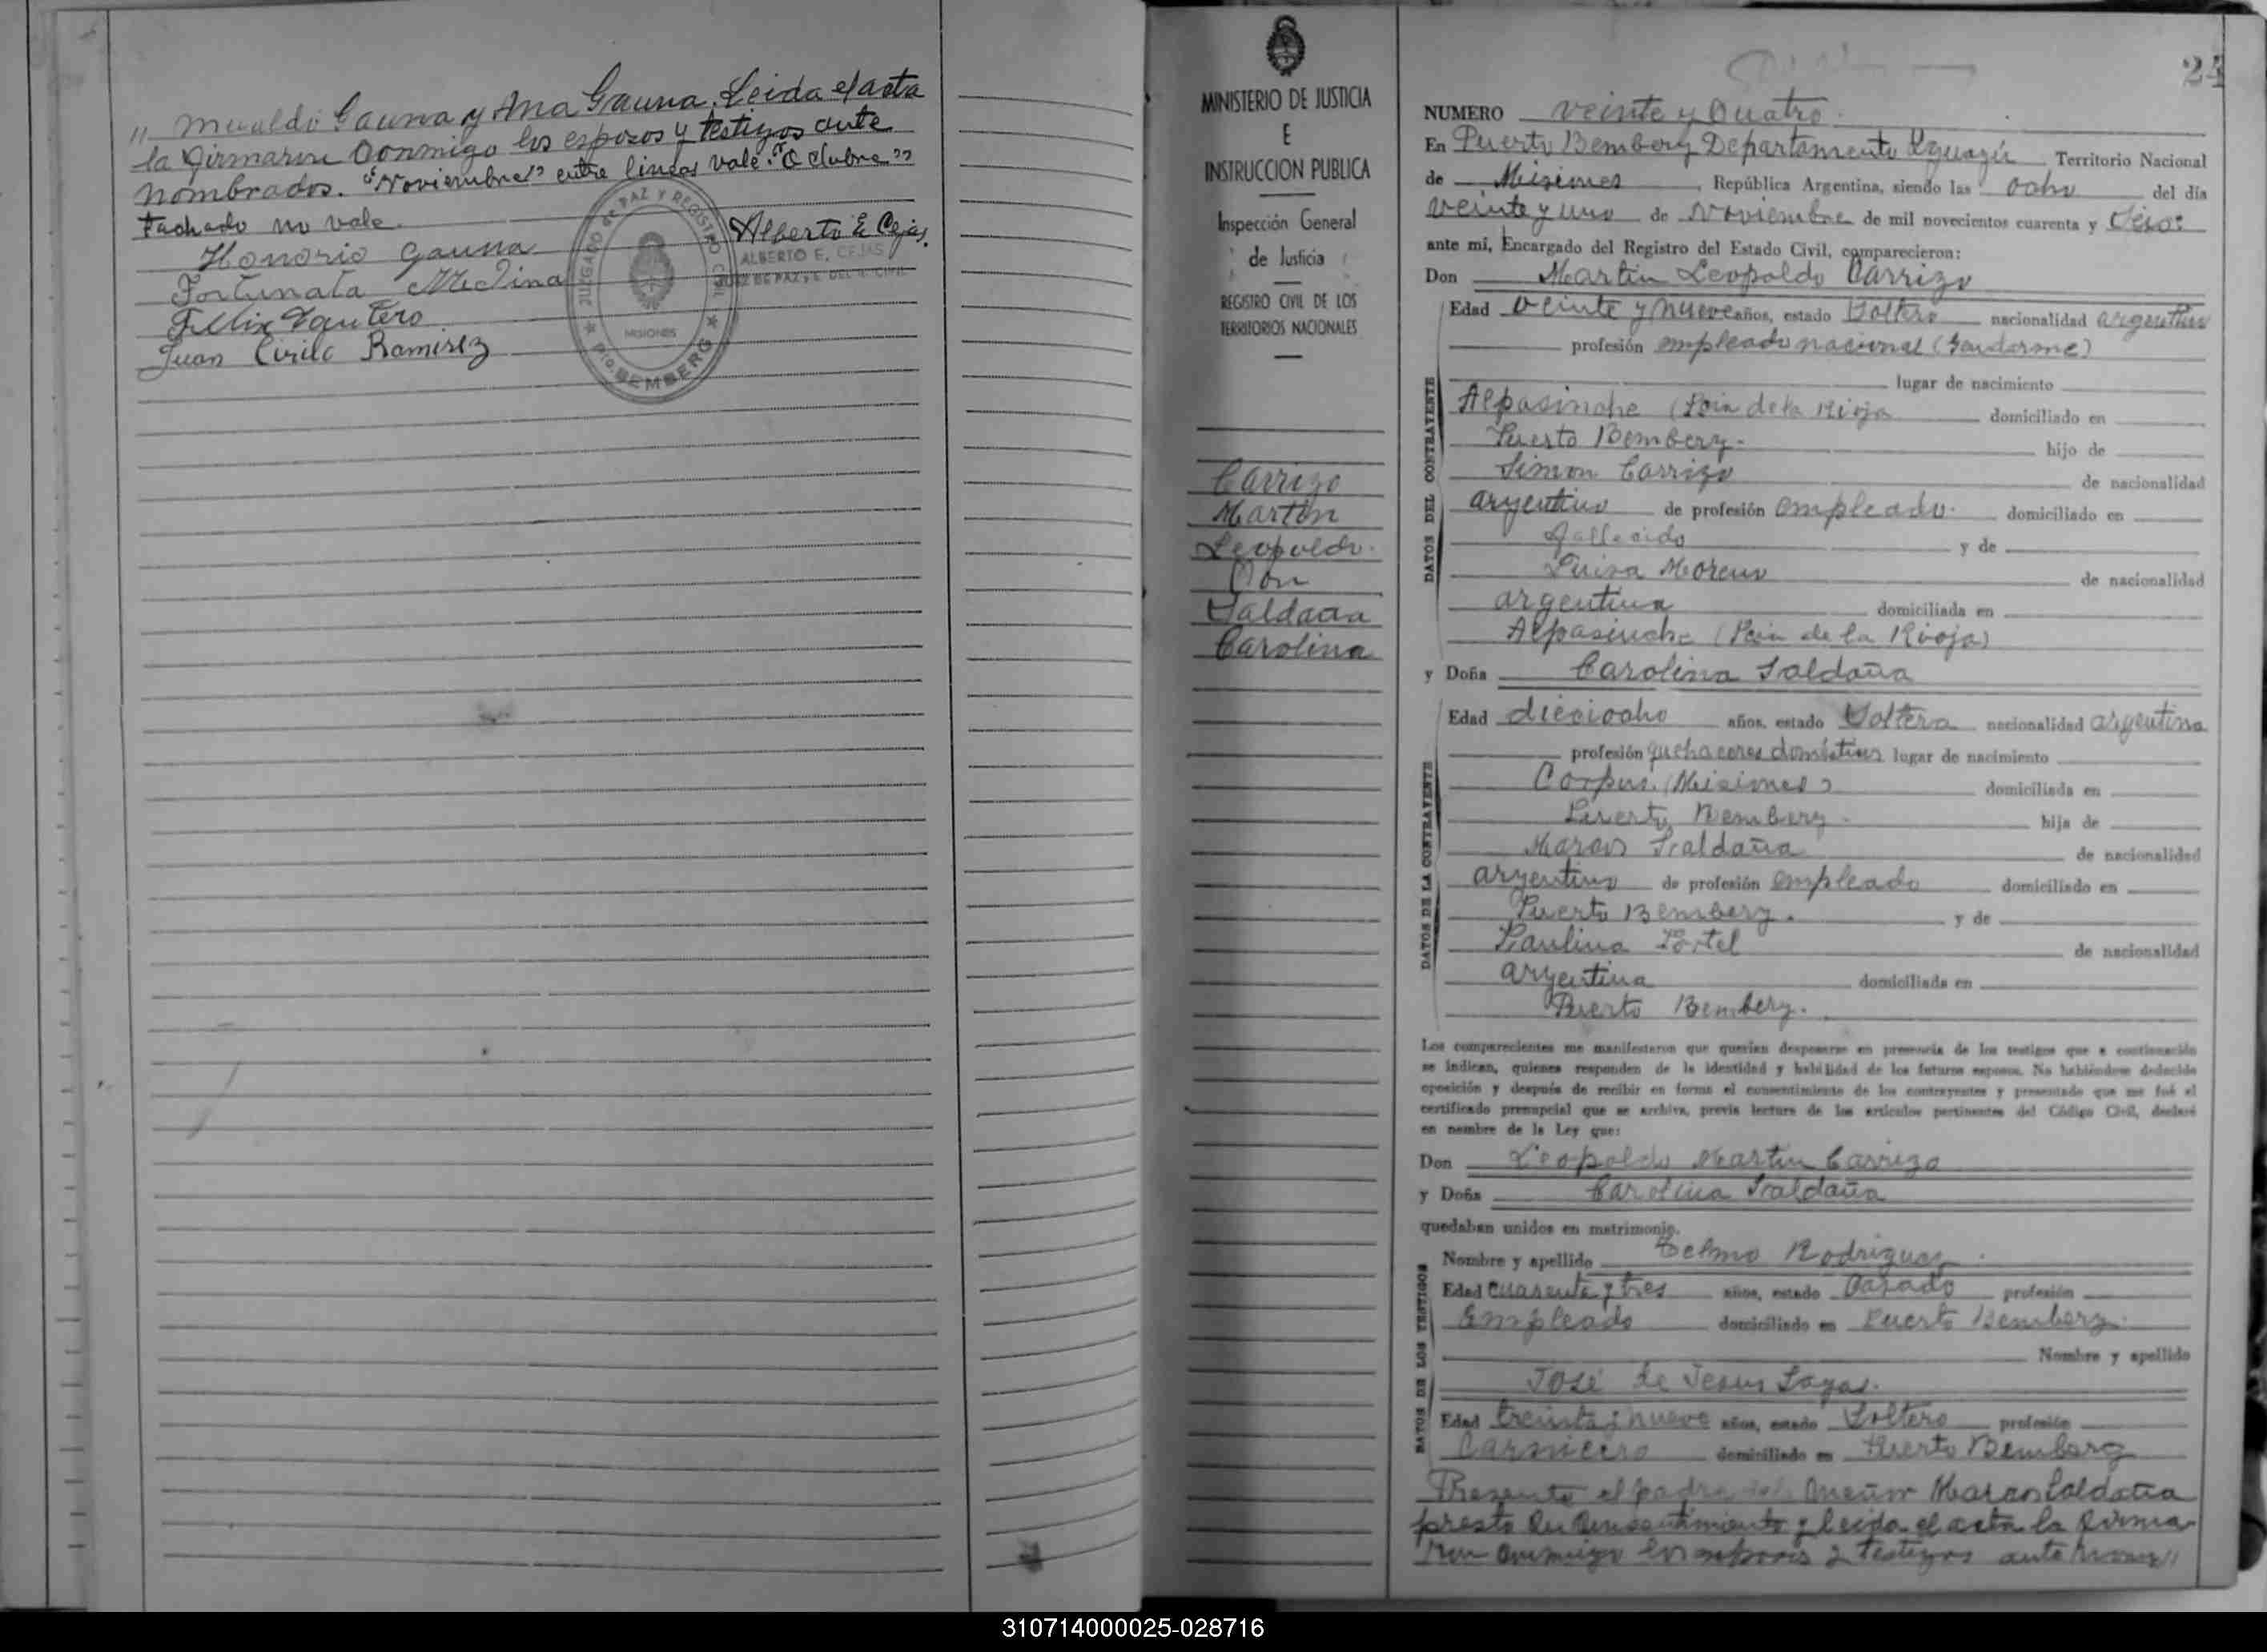 " mualdo Gauna y Ana Gauna. Leida el acta
la firmaron conmigo los esposos y testigos ante
nombrados. "Noviembre" entre lineas vale. "Octubre"
tachado no vale.
Honorio Gauna
Alberto E Cejas
ALBERTO E. CEJAS
JUEZ DE PAZ y E. DEL R. CIVIL
Fortunata Medina
Juan Cirilo Ramirez
JUZGADO de PAZ Y REGISTRO CIVIL
MISIONES
Pto. BEMBERG
MINISTERIO DE JUSTICIA
E
INSTRUCCION PUBLICA
Inspección General
de Justicia
REGISTRO CIVIL DE LOS
TERRITORIOS NACIONALES
Carrizo
Martin
Leopoldo.
Con
Saldaña
Carolina
24
NUMERO veinte y cuatro.
En Puerto Bemberg Departamento Yguazú Territorio Nacional
de Misiones, República Argentina, siendo las ocho del día
veinte y uno de Noviembre de mil novecientos cuarenta y seis:
ante mí, Encargado del Registro del Estado Civil, comparecieron:
Don Martin Leopoldo Carrizo
DATOS DEL CONTRAYENTE
Edad veinte y nueve años, estado Soltero nacionalidad argentino
profesión empleado nacional (Gendarme)
lugar de nacimiento
Alpasinche (Pcia de la Rioja domiciliado en
Puerto Bemberg. hijo de
Simon Carrizo de nacionalidad
argentino de profesión empleado. domiciliado en
fallecido y de
Luisa Moreno de nacionalidad
argentina domiciliada en
Alpasinche (Pcia de la Rioja)
y Doña Carolina Saldaña
DATOS DE LA CONTRAYENTE
Edad dieciocho años, estado Soltera nacionalidad argentina
profesión quehaceres domésticos lugar de nacimiento
Corpus (Misiones) domiciliada en
Puerto Bemberg. hija de
Marcos Saldaña de nacionalidad
argentino de profesión empleado domiciliado en
Puerto Bemberg. y de
Paulina de nacionalidad
argentina domiciliada en
Puerto Bemberg.
Los comparecientes me manifestaron que querían desposarse en presencia de los testigos que a continuación
se indican, quienes responden de la identidad y habilidad de los futuros esposos. No habiéndose deducido
oposición y después de recibir en forma el consentimiento de los contrayentes y presentado que me fué el
certificado prenupcial que se archiva, previa lectura de los artículos pertinentes del Código Civil, declaré
en nombre de la Ley que:
Don Leopoldo Martin Carrizo
y Doña Carolina Saldaña
quedaban unidos en matrimonio.
DATOS DE LOS TESTIGOS
Nombre y apellido Telmo Rodriguez.
Edad cuarenta y tres años, estado Casado profesión
Empleado domiciliado en Puerto Bemberg.
Nombre y apellido
José de Jesus
Edad treinta y nueve años, estado Soltero profesión
Carnicero domiciliado en Puerto Bemberg
Presente el padre menor Marcos Saldaña
presta su consentimiento y leida el acta la firma-
ron conmigo los esposos y testigos ante nom"
310714000025-028716